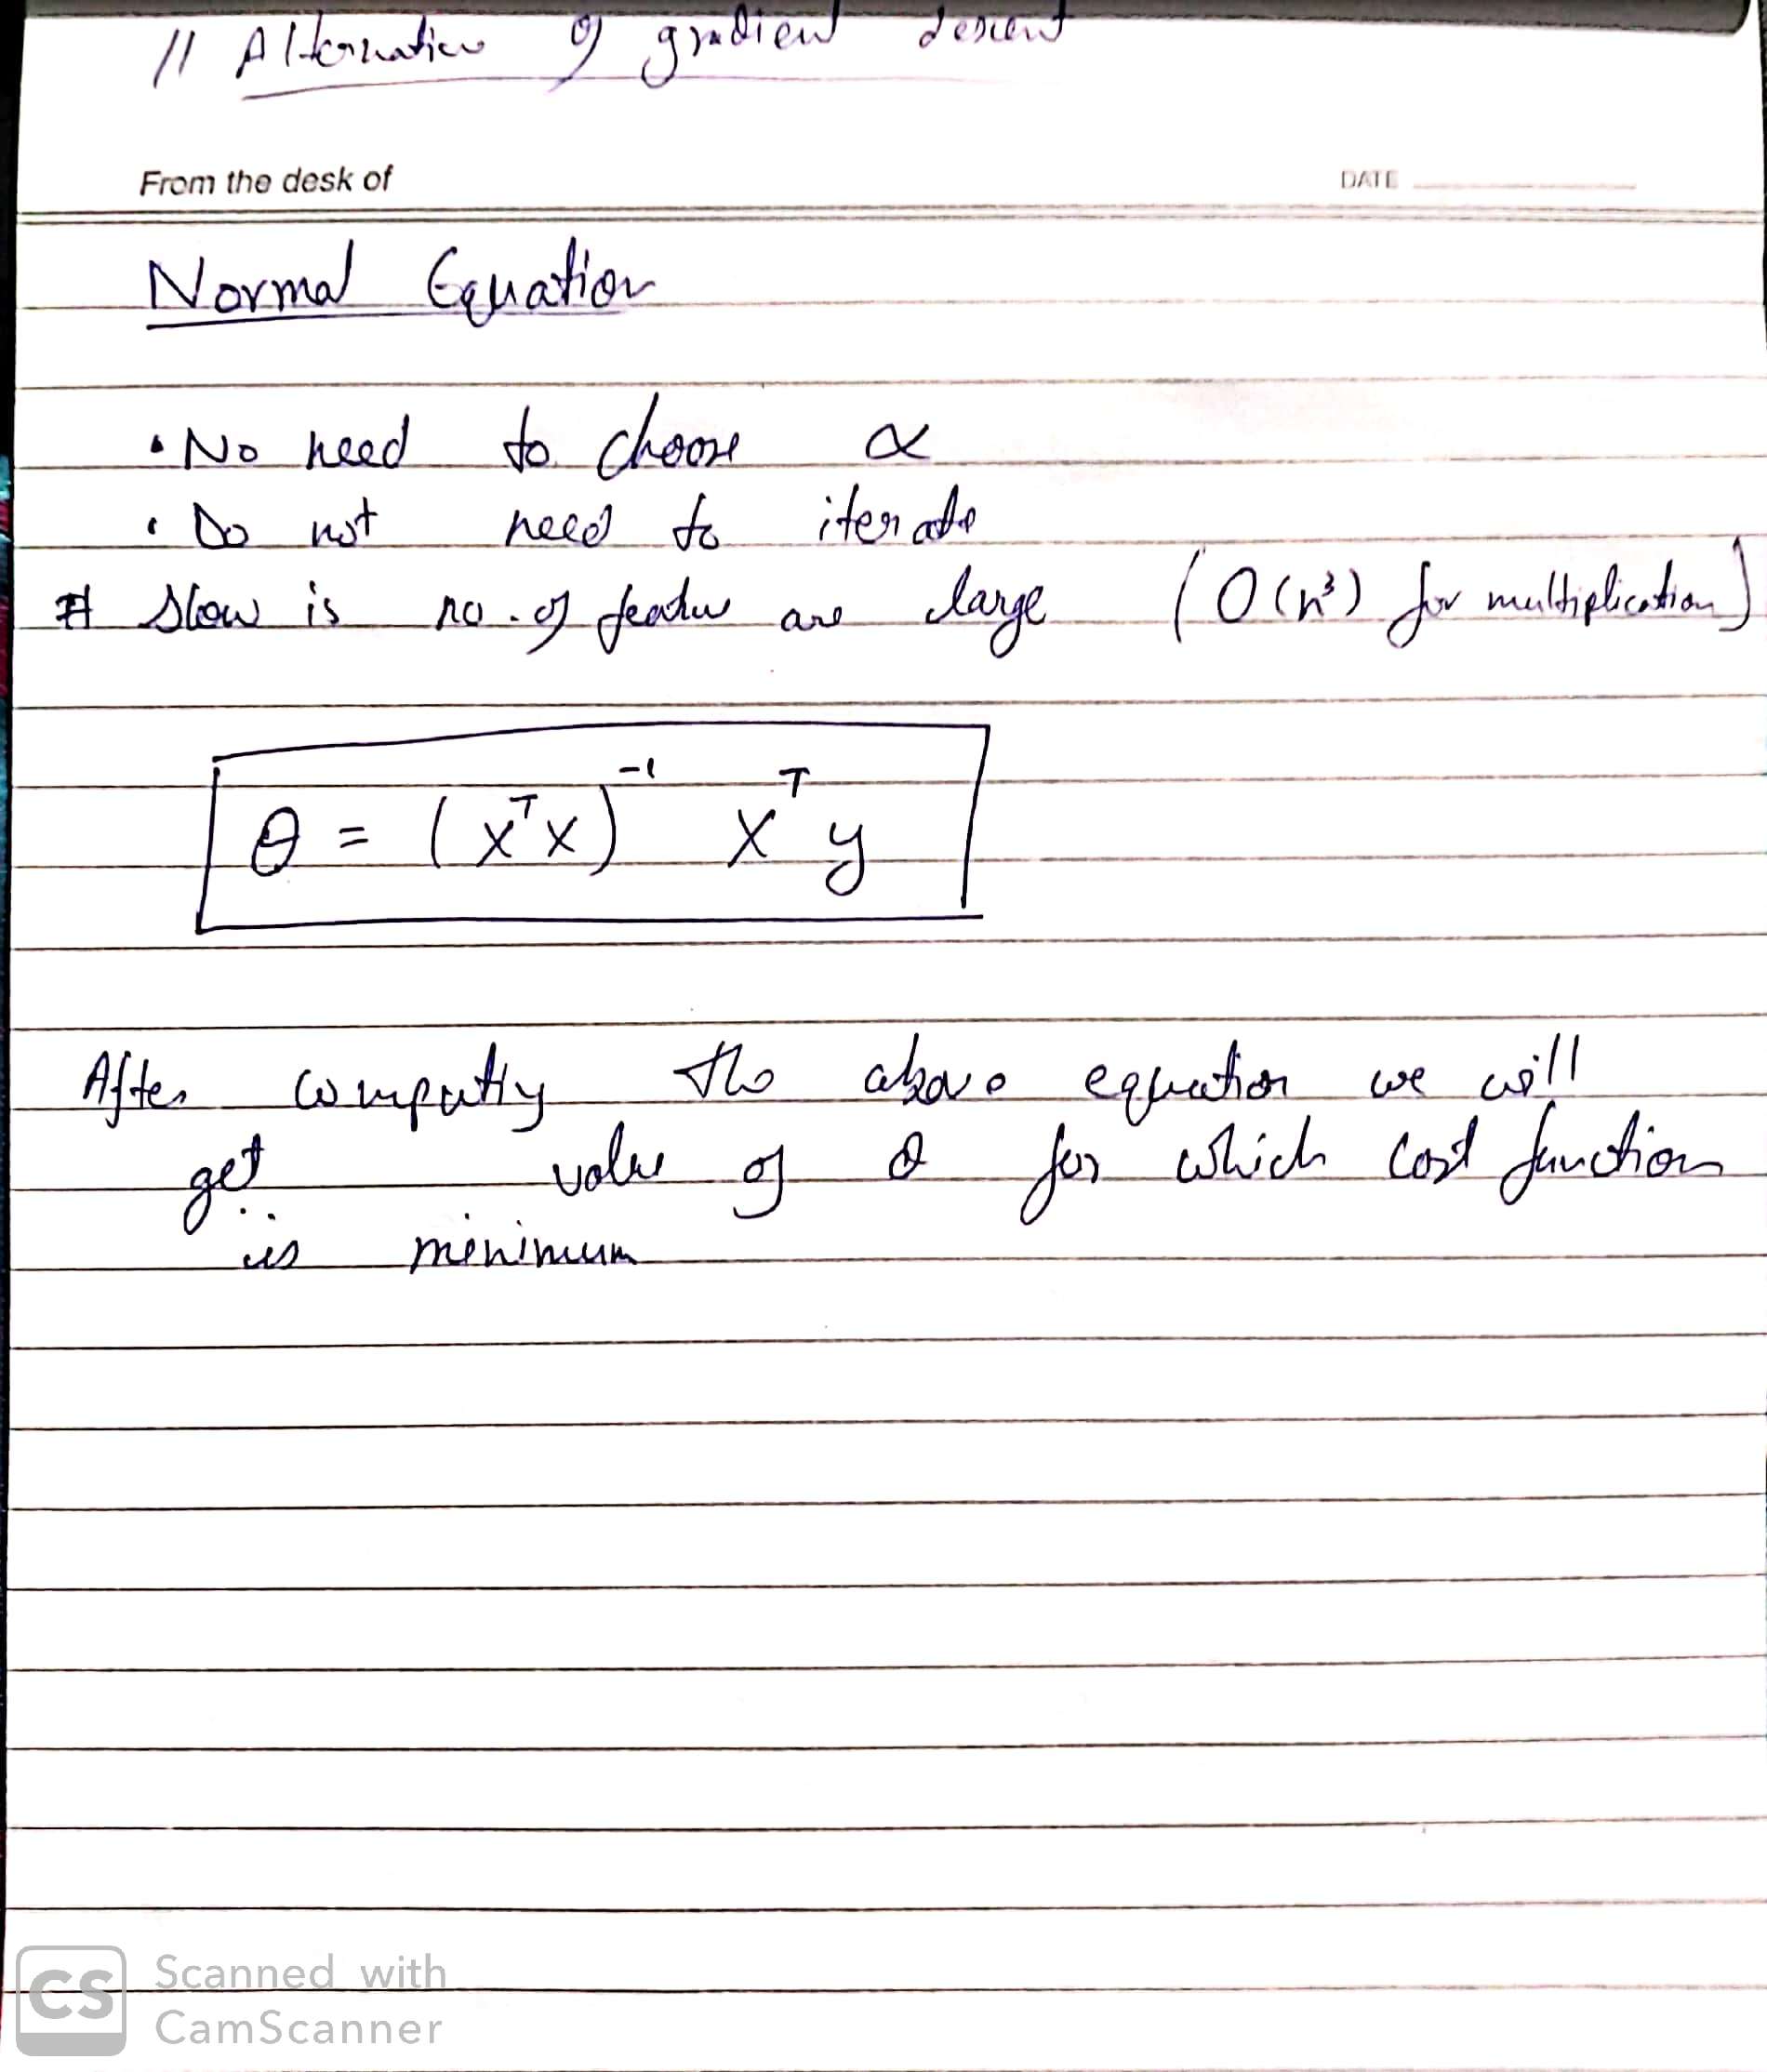 // Alternative of gradient descent
From the desk of
DATE
Normal Equation
• No need to choose α
• Do not need to iterate
# Slow is no. of featur are large (O(n³) for multiplication)
θ = (XᵀX)⁻¹ Xᵀy
After computing the above equation we will
get value of θ for which cost function
is minimum
CS Scanned with
CamScanner